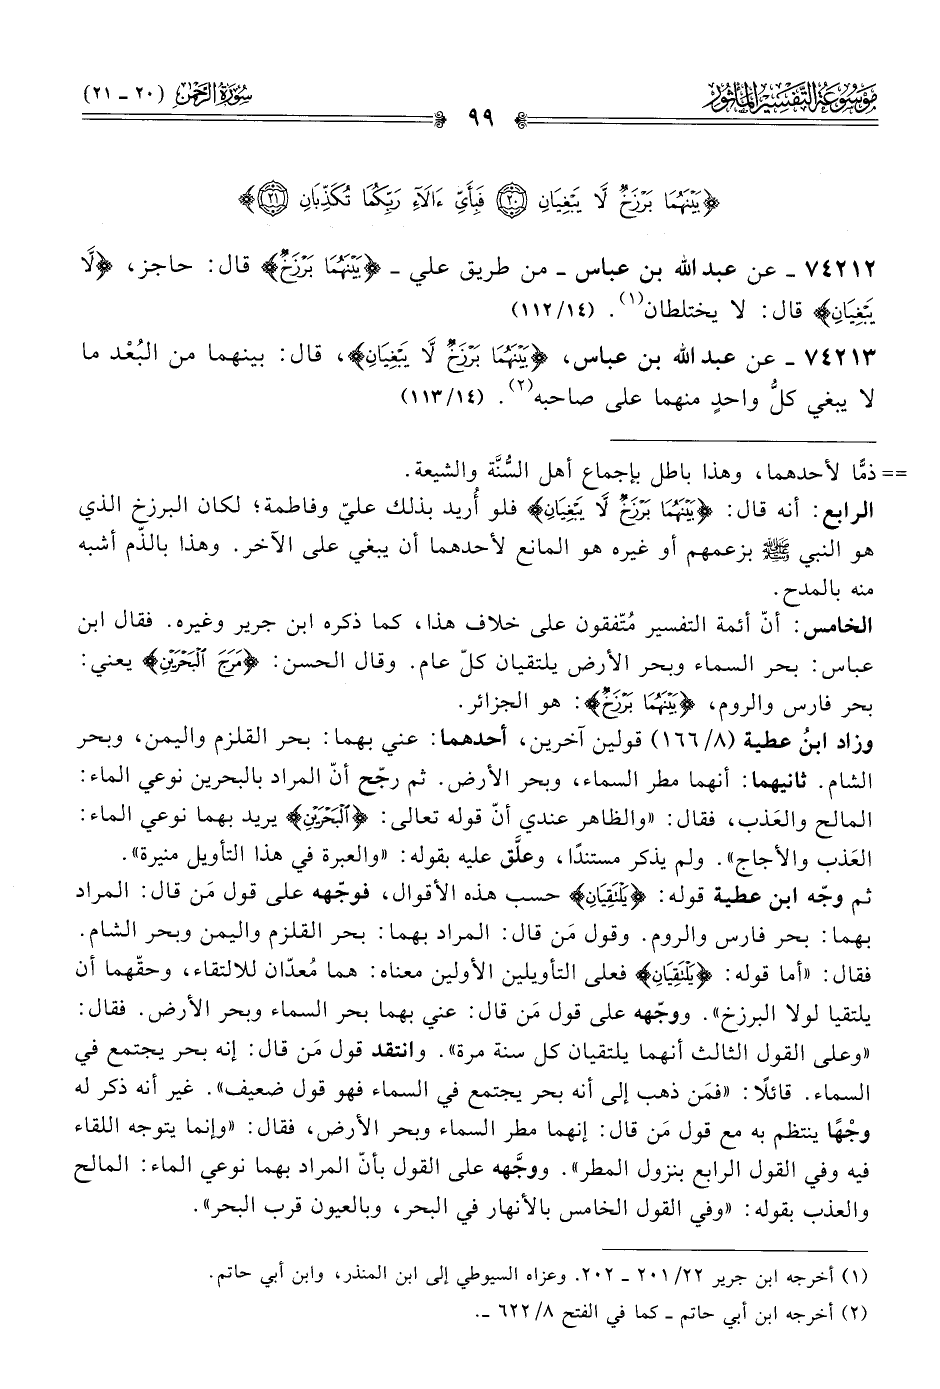 موسوعة التفسير المأثور
سورة الرحمن (٢٠ - ٢١)
٩٩
﴿بَيْنَهُمَا بَرْزَخٌ لَّا يَبْغِيَانِ ٢٠ فَبِأَيِّ ءَالَآءِ رَبِّكُمَا تُكَذِّبَانِ ٢١﴾
٧٤٢١٢ ـ عن عبد الله بن عباس ـ من طريق علي ـ ﴿بَيْنَهُمَا بَرْزَخٌ﴾ قال: حاجز، ﴿لَّا
يَبْغِيَانِ﴾ قال: لا يختلطان(١). (١١٢/١٤)
٧٤٢١٣ ـ عن عبد الله بن عباس، ﴿بَيْنَهُمَا بَرْزَخٌ لَّا يَبْغِيَانِ﴾، قال: بينهما من البُعْد ما
لا يبغي كلُّ واحدٍ منهما على صاحبه(٢). (١١٣/١٤)
== ذمًّا لأحدهما، وهذا باطل بإجماع أهل السُّنَّة والشيعة.
الرابع: أنه قال: ﴿بَيْنَهُمَا بَرْزَخٌ لَّا يَبْغِيَانِ﴾ فلو أُريد بذلك عليّ وفاطمة؛ لكان البرزخ الذي
هو النبي ﷺ بزعمهم أو غيره هو المانع لأحدهما أن يبغي على الآخر. وهذا بالذّم أشبه
منه بالمدح.
الخامس: أنّ أئمة التفسير مُتّفقون على خلاف هذا، كما ذكره ابن جرير وغيره. فقال ابن
عباس: بحر السماء وبحر الأرض يلتقيان كلّ عام. وقال الحسن: ﴿مَرَجَ ٱلْبَحْرَيْنِ﴾ يعني:
بحر فارس والروم، ﴿بَيْنَهُمَا بَرْزَخٌ﴾: هو الجزائر.
وزاد ابنُ عطية (١٦٦/٨) قولين آخرين، أحدهما: عني بهما: بحر القلزم واليمن، وبحر
الشام. ثانيهما: أنهما مطر السماء، وبحر الأرض. ثم رجّح أنّ المراد بالبحرين نوعي الماء:
المالح والعَذب، فقال: «والظاهر عندي أنّ قوله تعالى: ﴿ٱلْبَحْرَيْنِ﴾ يريد بهما نوعي الماء:
العَذب والأجاج». ولم يذكر مستندًا، وعلَّق عليه بقوله: «والعبرة في هذا التأويل منيرة».
ثم وجّه ابن عطية قوله: ﴿يَلْتَقِيَانِ﴾ حسب هذه الأقوال، فوجّهه على قول مَن قال: المراد
بهما: بحر فارس والروم. وقول مَن قال: المراد بهما: بحر القلزم واليمن وبحر الشام.
فقال: «أما قوله: ﴿يَلْتَقِيَانِ﴾ فعلى التأويلين الأولين معناه: هما مُعدّان للالتقاء، وحقّهما أن
يلتقيا لولا البرزخ». ووجّهه على قول مَن قال: عني بهما بحر السماء وبحر الأرض. فقال:
«وعلى القول الثالث أنهما يلتقيان كل سنة مرة». وانتقد قول مَن قال: إنه بحر يجتمع في
السماء. قائلًا: «فمَن ذهب إلى أنه بحر يجتمع في السماء فهو قول ضعيف». غير أنه ذكر له
وجْهًا ينتظم به مع قول مَن قال: إنهما مطر السماء وبحر الأرض، فقال: «وإنما يتوجه اللقاء
فيه وفي القول الرابع بنزول المطر». ووجَّهه على القول بأنّ المراد بهما نوعي الماء: المالح
والعذب بقوله: «وفي القول الخامس بالأنهار في البحر، وبالعيون قرب البحر».
(١) أخرجه ابن جرير ٢٢/ ٢٠١ ـ ٢٠٢. وعزاه السيوطي إلى ابن المنذر، وابن أبي حاتم.
(٢) أخرجه ابن أبي حاتم ـ كما في الفتح ٨/ ٦٢٢ ـ.